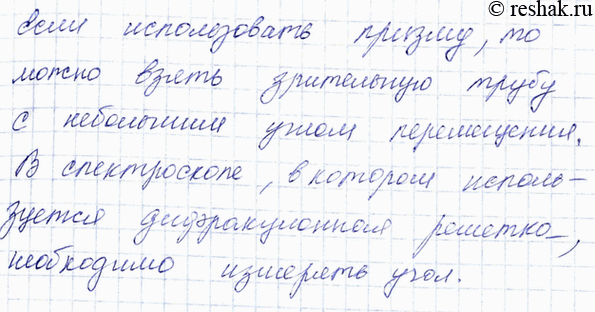 © reshak.ru
Если использовать призму, то
можно взять зрительную трубу
с небольшим углом перемещения.
В спектроскопе, в котором исполь-
зуется дифракционная решетка,
необходимо измерять угол.